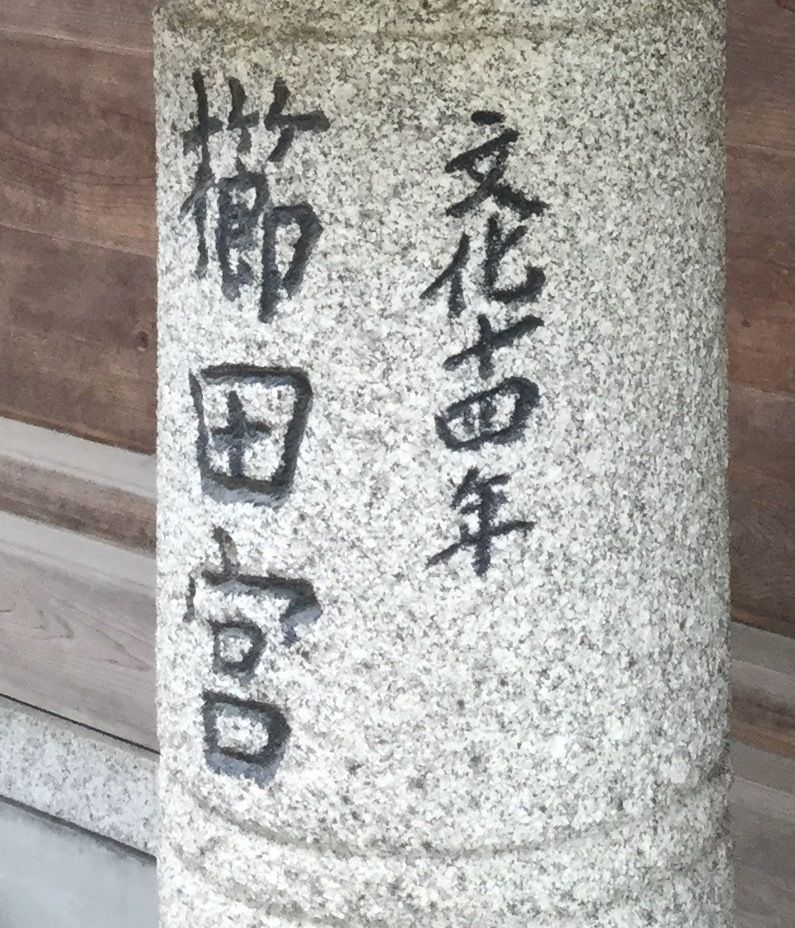 文化十四年
櫛田宮